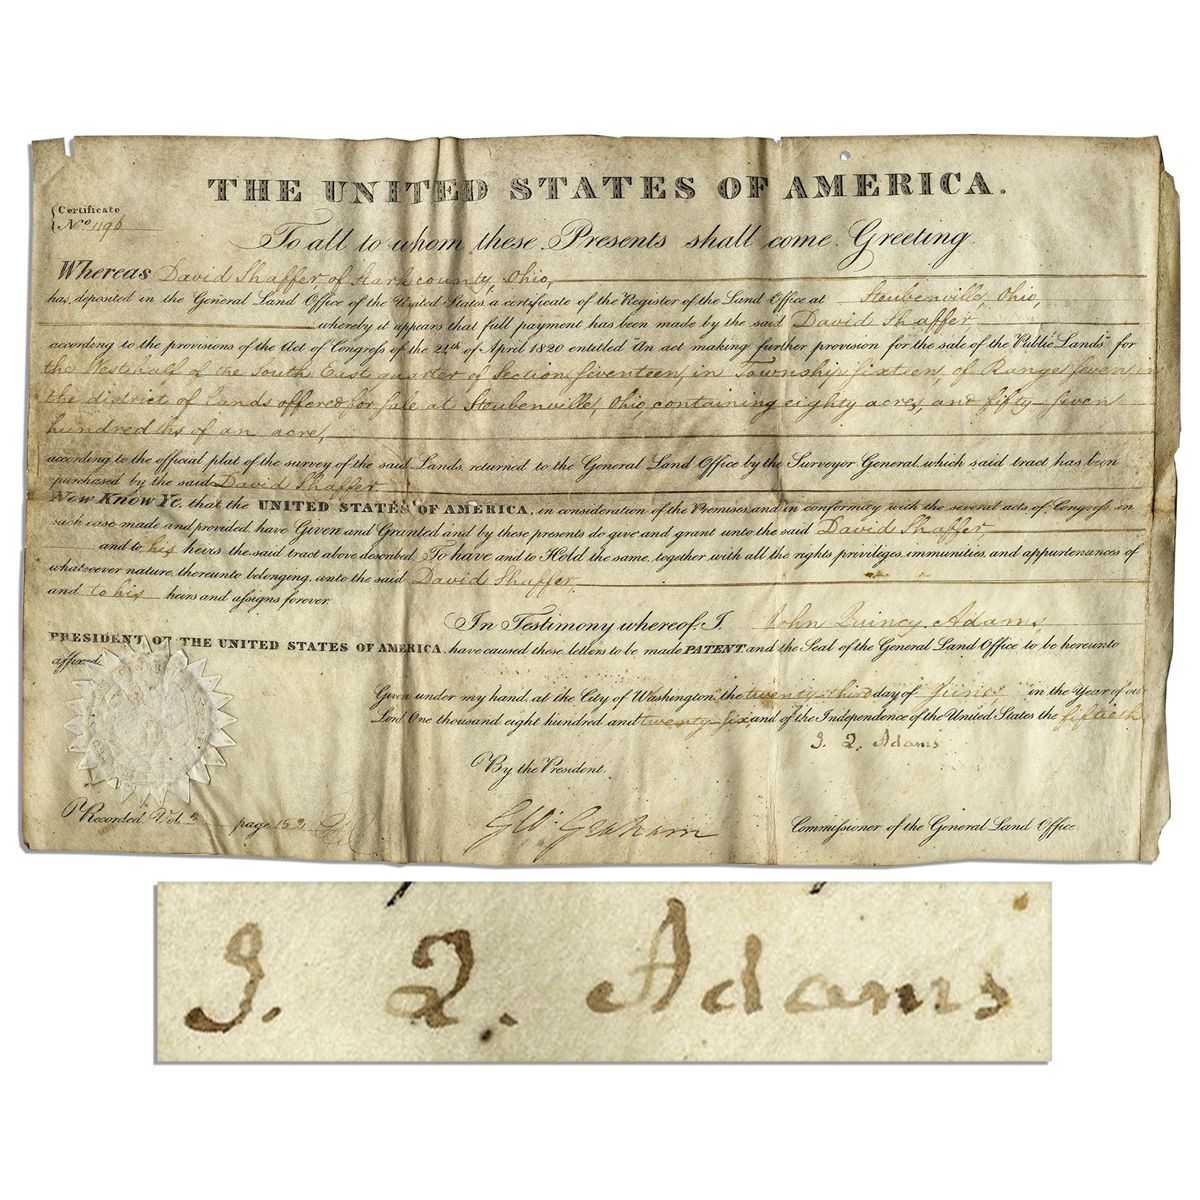 THE UNITED STATES OF AMERICA.
Certificate
No. 1196
To all to whom these Presents shall come Greeting.
Whereas David Shaffer of Stark county, Ohio,
has deposited in the General Land Office of the United States, a certificate of the Register of the Land Office at Steubenville, Ohio,
whereby it appears that full payment has been made by the said David Shaffer,
according to the provisions of the Act of Congress of the 24th of April 1820 entitled "An act making further provision for the sale of the Public Lands" for
the West half of the South East quarter of Section Seventeen, in Township Sixteen, of Range Seven, in
the district of lands offered for sale at Steubenville, Ohio containing eighty acres, and fifty seven
hundredths of an acre,
according to the official plat of the survey of the said Lands, returned to the General Land Office by the Surveyor General, which said tract has been
purchased by the said David Shaffer
Now Know Ye, that the UNITED STATES OF AMERICA, in consideration of the Premises and in conformity with the several acts of Congress, in
such case made and provided, have Given and Granted and by these presents do give and grant unto the said David Shaffer,
and to his heirs the said tract above described, To have and to Hold the same, together with all the rights privileges, immunities and appurtenances of
whatsoever nature, thereunto belonging, unto the said David Shaffer,
and to his heirs and assigns forever.
In Testimony whereof, I John Quincy Adams,
PRESIDENT OF THE UNITED STATES OF AMERICA, have caused these letters to be made PATENT and the Seal of the General Land Office to be hereunto
affixed.
Given under my hand, at the City of Washington, the twenty third day of June in the Year of our
Lord One thousand eight hundred and twenty six, and of the Independence of the United States the fiftieth
J. Q. Adams
By the President,
Recorded, Vol. 3 page 153
G W Graham
Commissioner of the General Land Office.
J. Q. Adams